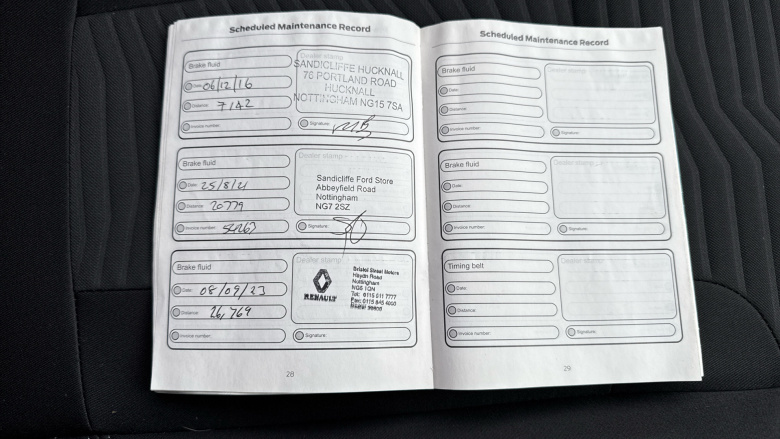 Scheduled Maintenance Record
Brake fluid
Date: 06/12/16
Distance: 7142
Invoice number:
Dealer stamp
SANDICLIFFE HUCKNALL
76 PORTLAND ROAD
HUCKNALL
NOTTINGHAM NG15 7SA
Signature:
Brake fluid
Date: 25/8/21
Distance: 20779
Invoice number:
Dealer stamp
Sandicliffe Ford Store
Abbeyfield Road
Nottingham
NG7 2SZ
Signature:
Brake fluid
Date: 08/09/23
Distance: 26,769
Invoice number:
Dealer stamp
RENAULT
Bristol Street Motors
Haydn Road
Nottingham
NG5 1DN
Tel: 0115 511 7777
Fax: 0115 845 4000
Signature:
28
Scheduled Maintenance Record
Brake fluid
Date:
Distance:
Invoice number:
Dealer stamp
Signature:
Brake fluid
Date:
Distance:
Invoice number:
Dealer stamp
Signature:
Timing belt
Date:
Distance:
Invoice number:
Dealer stamp
Signature:
29